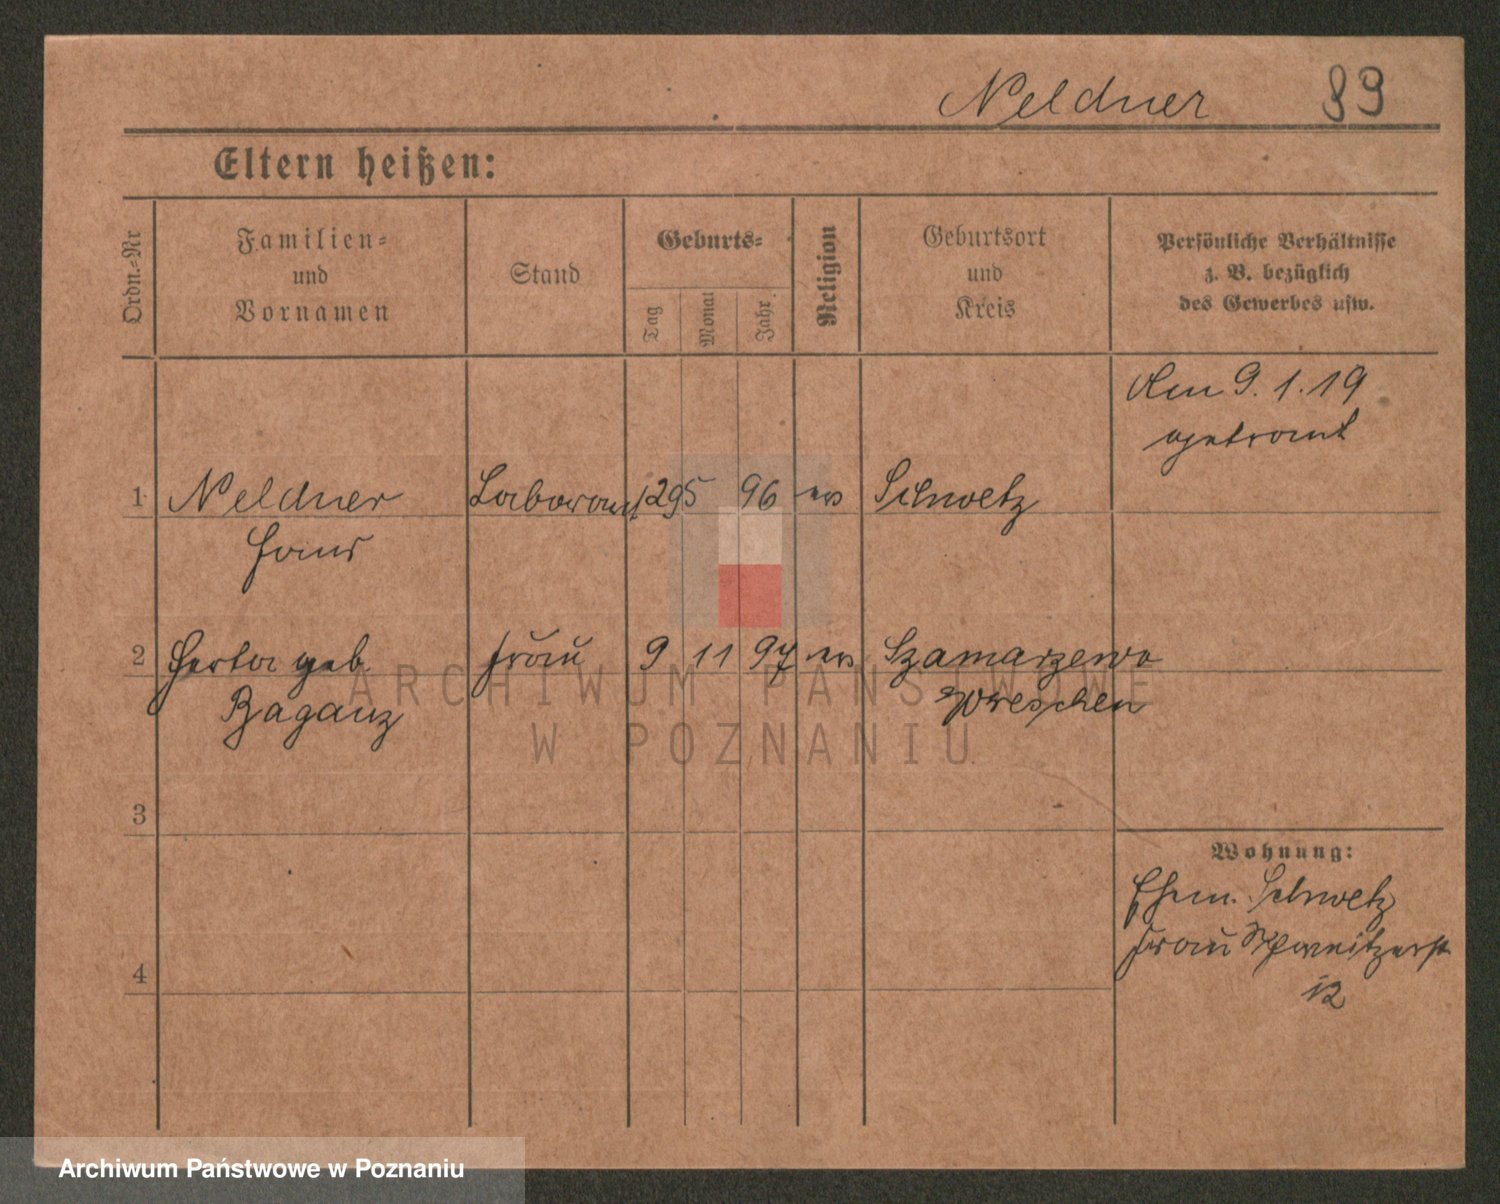 Neldner 89
Eltern heißen:
Ordn.-Nr
Familien-
und
Vornamen
Stand
Geburts-
Tag
Monat
Jahr
Religion
Geburtsort
und
Kreis
Persönliche Verhältnisse
z. B. bezüglich
des Gewerbes usw.
Am 9. 1. 19
getraut
1 Neldner Laborant 29 5 96 ev Schwetz
Hans
2 Herta geb. Frau 9 11 97 ev Szamarzewo
Baganz Wreschen
3
Wohnung:
Ehem. Schwetz
Frau
12
4
ARCHIWUM PAŃSTWOWE
W POZNANIU
Archiwum Państwowe w Poznaniu